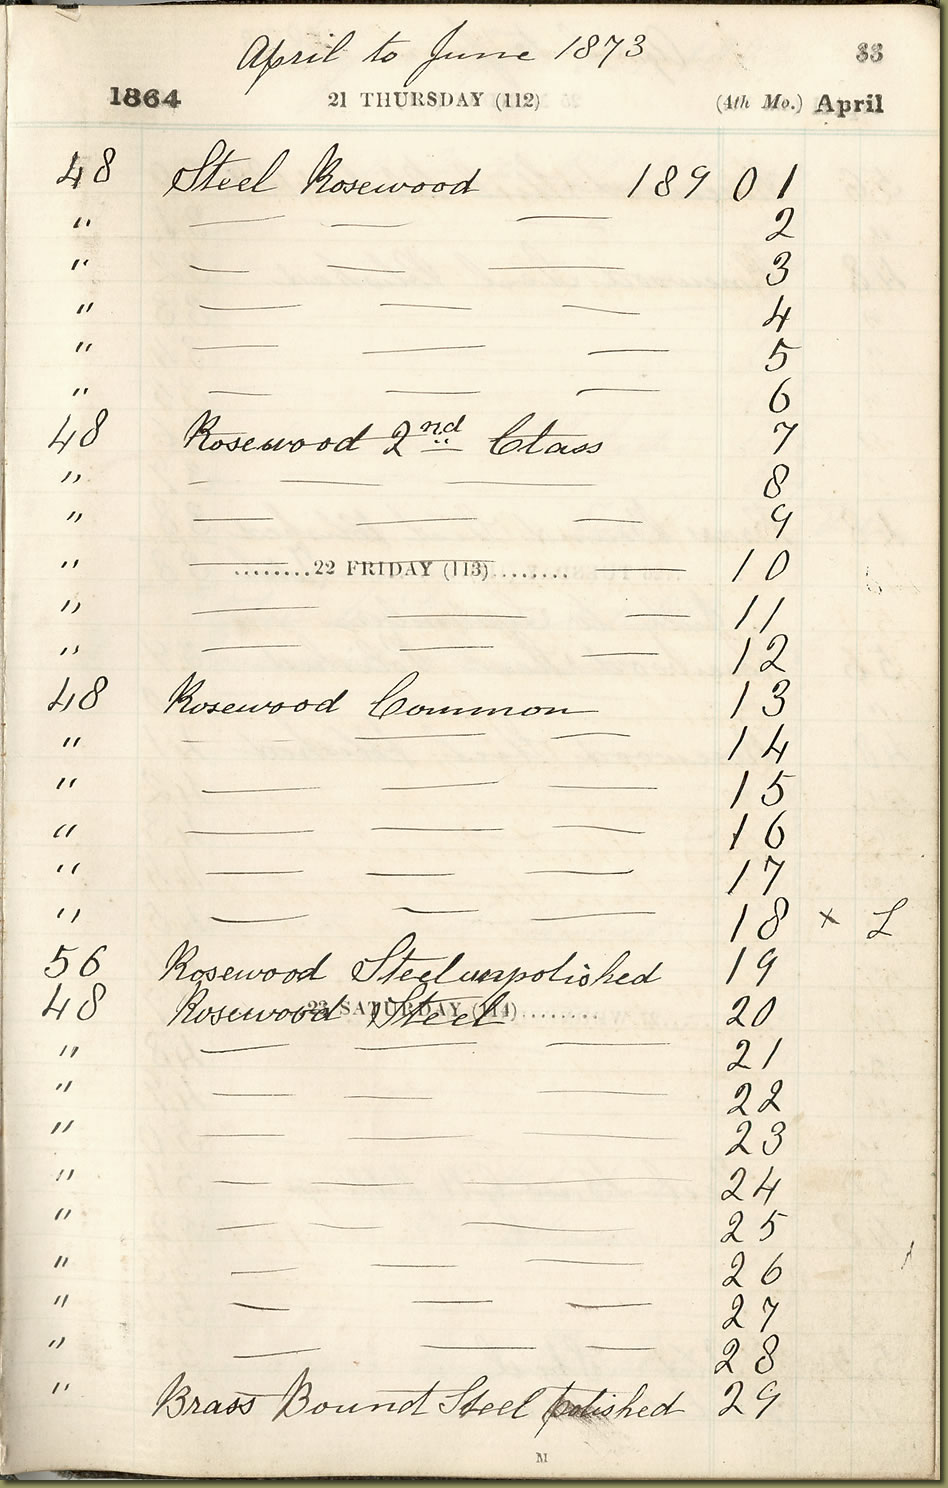 April to June 1873
33
1864 21 THURSDAY (112) (4th Mo.) April
48 Steel Rosewood 189 0 1
" — — — 2
" — — — 3
" — — — 4
" — — — 5
" — — — 6
48 Rosewood 2nd Class 7
" — — — 8
" — — — 9
" — — — 10
........22 FRIDAY (113)........
" — — — 11
" — — — 12
48 Rosewood Common 13
" — — — 14
" — — — 15
" — — — 16
" — — — 17
" — — — 18 × L
56 Rosewood Steel unpolished 19
48 Rosewood Steel 20
23 SATURDAY (114)........
" — — — 21
" — — — 22
" — — — 23
" — — — 24
" — — — 25
" — — — 26
" — — — 27
" — — — 28
" Brass Bound Steel polished 29
M